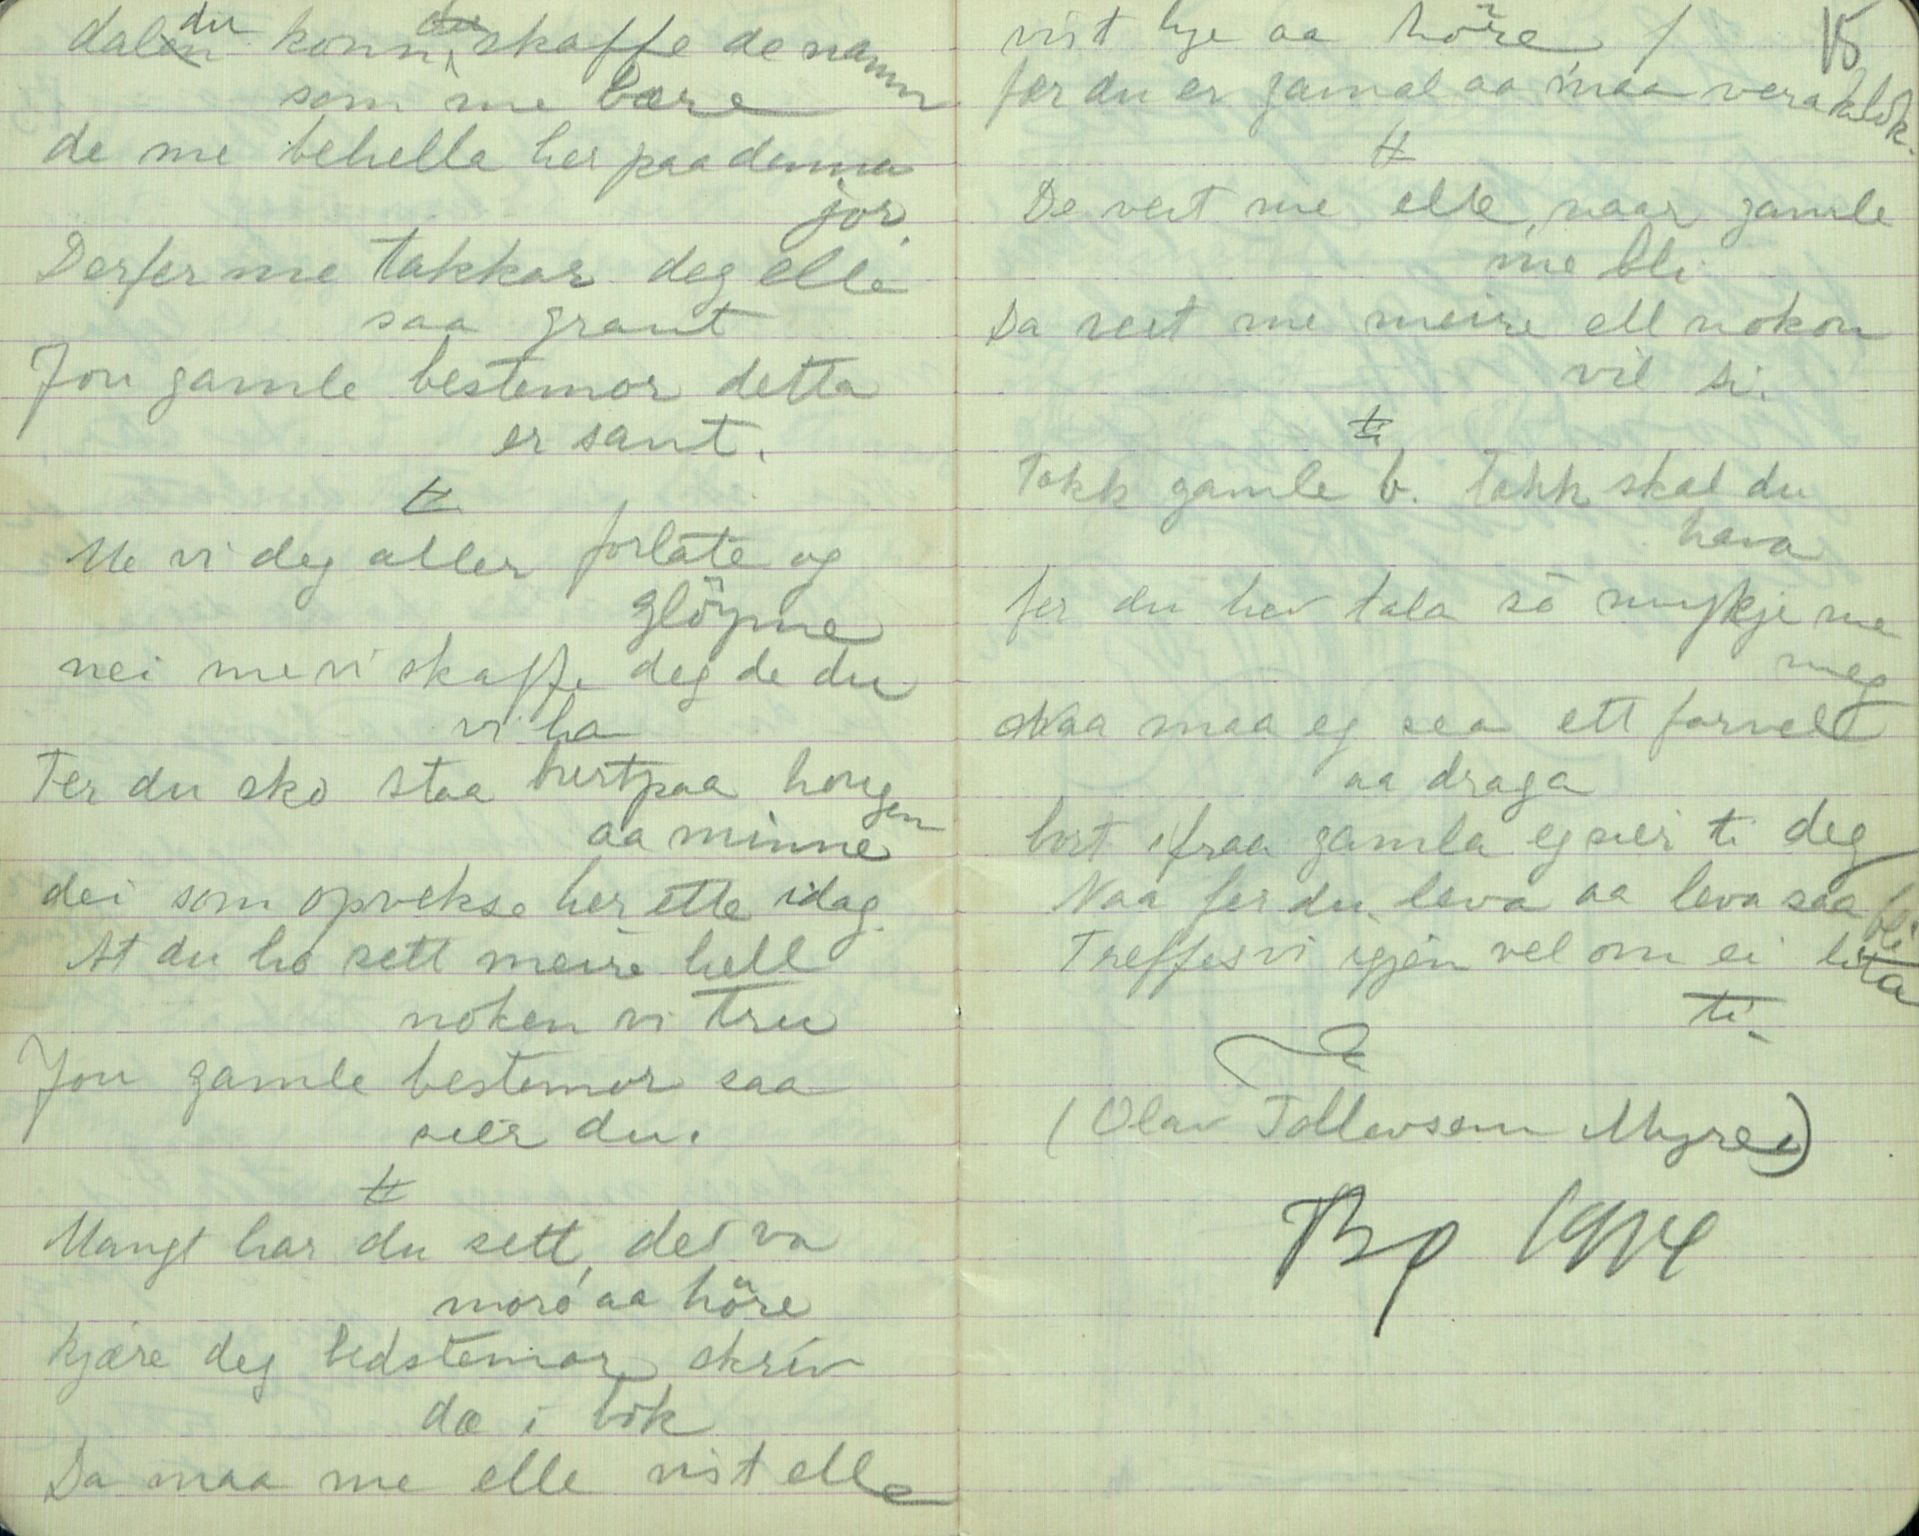 dalen du konn skaffe de namn
som me bære
de me behella her paa denna
jor.
Derfer me takkar deg elle
saa grant
Jou gamle bestemor detta
er sant.
Me vi deg aller forlate og
glöyme
nei me vi skaffe deg de du
vi ha
Fer du sko staa burtpaa hougen
aa minne
dei som opvekse her ette idag.
At du ho sett meire hell
noken vi tru
Jou gamle bestemor saa
sier du.
Mangt har du sett, det va
moro aa höre
kjære deg bedstemor skriv
dæ i bok
Da maa me elle vist elle
15
vist lye aa höre /
fer du er gamal aa maa vera klok.
De veit me elle, naar gamle
me bli
Da veit me meire ell nokon
vil si.
Takk gamle b. Takk skal du
hava
fer du hev tala så mykje me
meg
Naa maa eg sea ett farvell
aa draga
bort ifraa gamla eg sier ti deg
Naa fer du leva aa leva saa bli
Treffes vi igjen vel om ei lita
ti.
(Olav Tollevsen Myrei)
Bø 1914